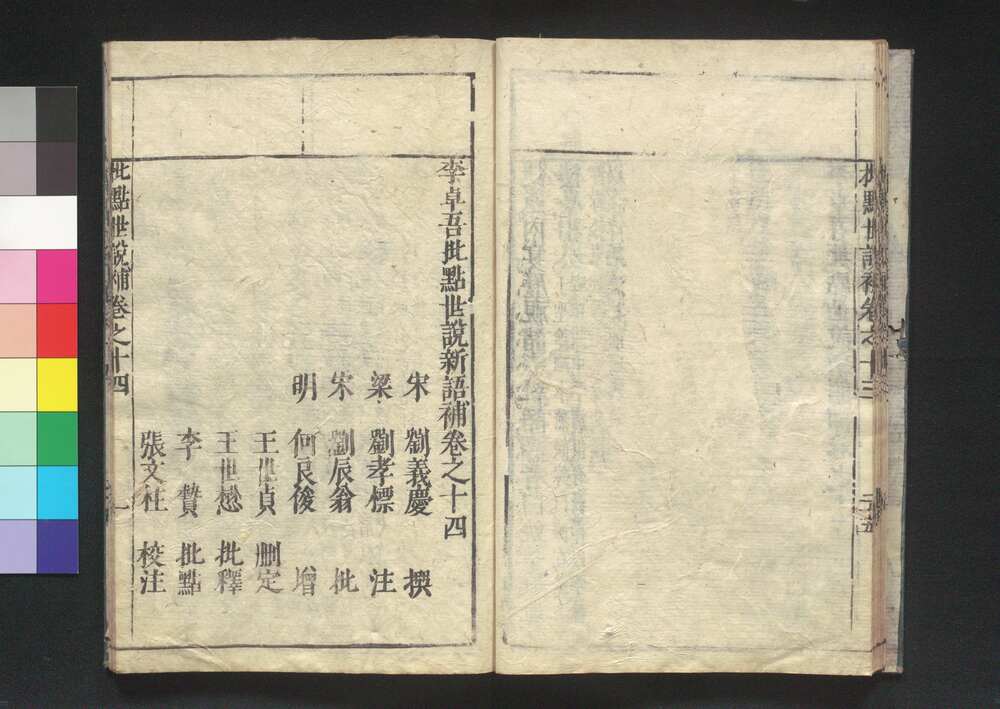 批點世說補卷之十三
二十五
李卓吾批點世說新語補卷之十四
宋 劉義慶 撰
梁 劉孝標 注
宋 劉辰翁 批
明 何良俊 增
王世貞 刪定
王世懋 批釋
李贄 批點
張文柱 校注
批點世說補卷之十四
一